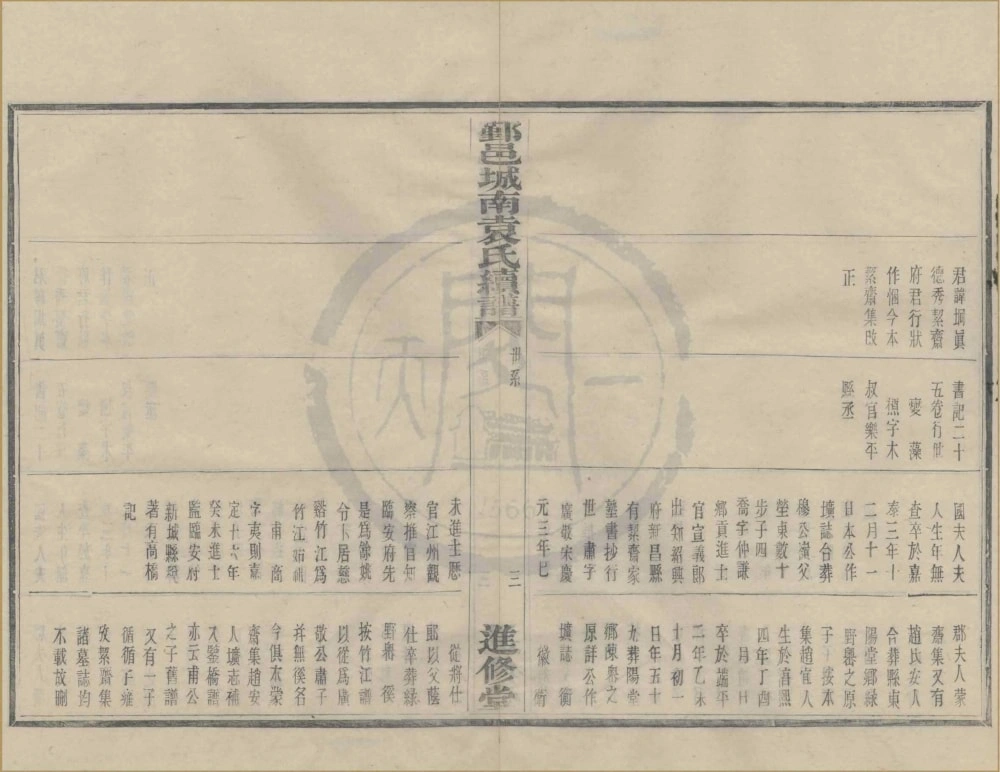 君諱坰眞
德秀絜齋
府君行狀
作個今本
絜齋集改
正
書記二十
五卷行世
燮 藻
叔官樂平
縣丞
國夫人夫
人生年無
查卒於嘉
泰三年十
二月十一
日本公作
壙誌合葬
穆公嶺父
塋東數十
步子四
喬字仲謙
鄉貢進士
官宣義郎
出知紹興
府新昌縣
有絜齋家
塾書抄行
世 肅字
廣微宋慶
元三年巳
鄞夫人蒙
齋集又有
趙氏安人
合葬縣東
陽堂鄉綠
野嶴之原
子于按本
集趙宜人
生於宣熙
四年丁酉
月 日
卒於端平
二年乙未
十月初一
日年五十
九葬陽堂
鄉陳嶴之
原詳公作
壙誌 衡
徽 衍
鄞邑城南袁氏續譜
世系
三
進修堂
未進士歷
官江州觀
察推官知
臨安府先
是爲鄮姚
令卜居慈
谿竹江爲
竹江始祖
甫 商
字夷則嘉
定十六年
癸未進士
監臨安府
新城縣稅
著有高橋
記
從將仕
郎以父蔭
仕卒葬綠
野嶴 復
按竹江譜
以從爲廣
敬公肅子
幷無復名
今俱本棠
齋集趙安
人壙志補
又鑒橋譜
亦云甫公
之子舊譜
又有一子
循循子雍
攷絜齋集
諸墓誌均
不載故刪